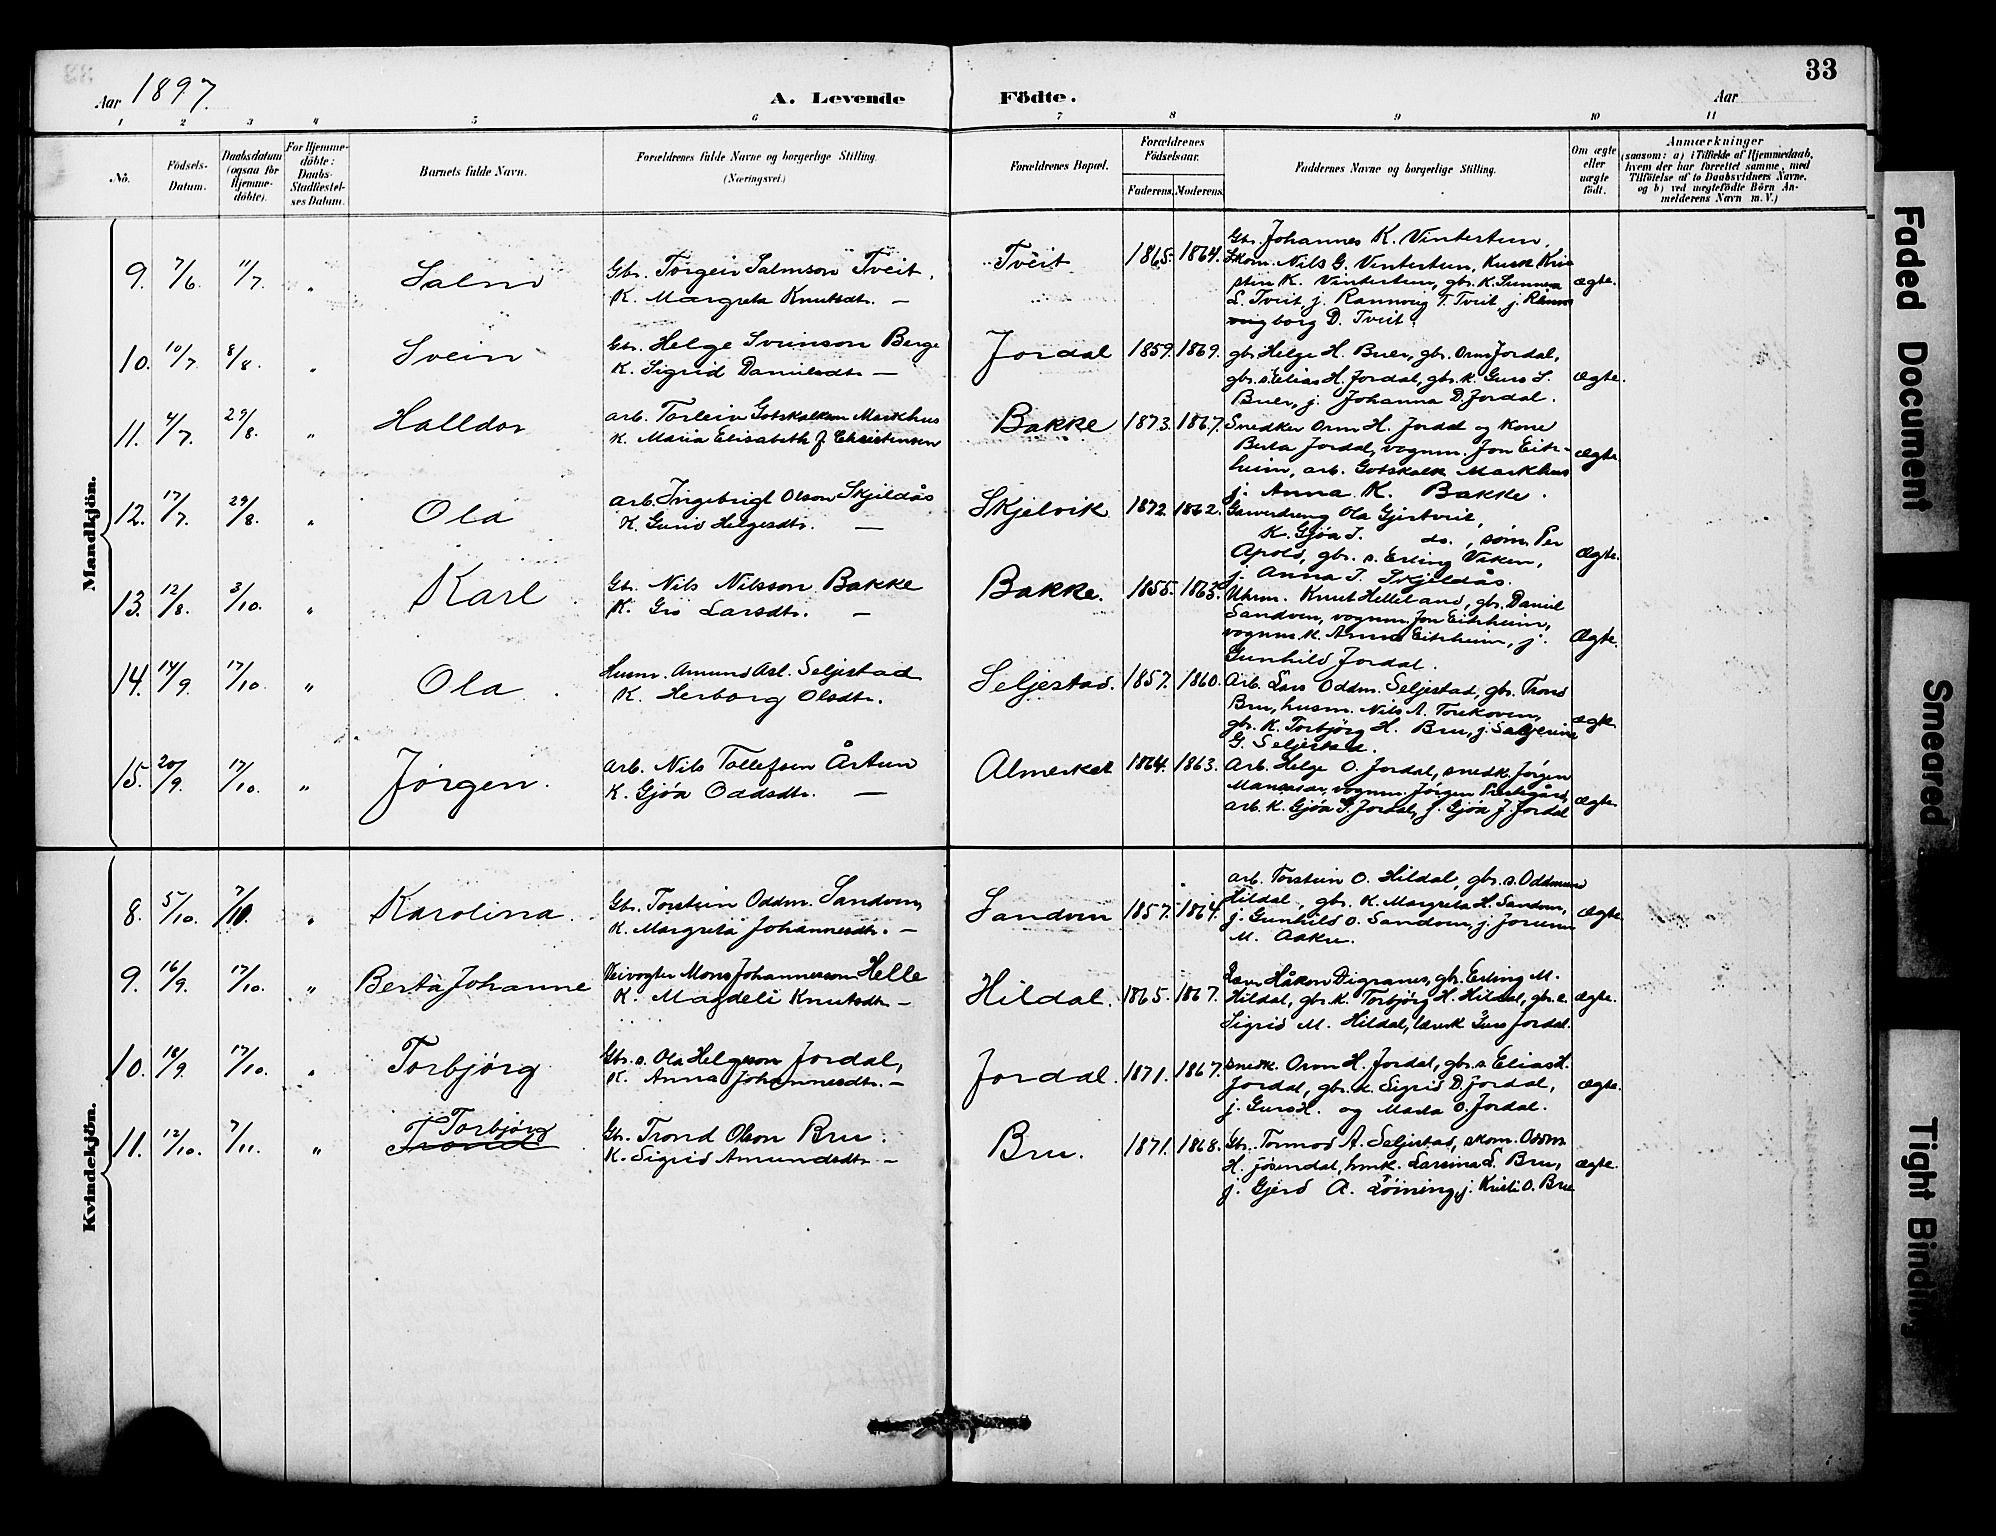 Aar 1897.
A. Levende Födte.
33
Aar
1 2 3 4 5 6 7 8 9 10 11
No.
Födsels-Datum.
Daabsdatum (ogsaa for Hjemme-döbte).
For Hjemme-döbte: Daabs-Stadfæstel-ses Datum.
Barnets fulde Navn.
Forældrenes fulde Navne og borgerlige Stilling.
(Næringsvei.)
Forældrenes Bopæl.
Forældrenes Födselsaar.
Faderens. Moderens.
Faddernes Navne og borgerlige Stilling.
Om ægte eller uægte födt.
Anmærkninger
(saasom: a) i Tilfælde af Hjemmedaab,
hvem der har forrettet samme, med
Tilföielse af to Daabsvidners Navne.
og b) ved uægtefödte Börn An-
melderens Navn m. V.)
Mandkjön.
9. 7/6 11/7. " Salmo
Gbr. Torgeir Salmson Tveit.
K. Margreta Knutsdtr. —
Tveit 1865. 1864.
Gbr. Johannes K. Vintertun,
Skom. Nils G. Vintertun, Kusk Kri
stin K. Vintertun, gbr. K. Sunneva
L. Tveit, j. Rannveg T. Tveit, j.
borg D. Tveit.
ægte.
10. 10/7. 8/8. " Svein
Gbr. Helge Svinson Berge
K. Sigrid Danielsdtr. —
Jordal 1859. 1869.
gbr Helge H. Buer, gbr. Orm Jordal,
gbr. s. Elias H. Jordal, gbr. k. Guro S.
Buer, j. Johanna D. Jordal.
ægte.
11. 4/7. 29/8. " Halldor
arb. Torleiv Gotskalksen Markhus
K. Maria Elisabeth f Christensen
Bakke 1873. 1867.
Snedker Orm H. Jordal og Kone
Berta Jordal, vognm. Jon Eitr-
heim, arb. Gotskalk Markhus
j. Anna K. Bakke.
ægte.
12. 17/7. 29/8. " Ola
arb. Ingebrigt Olson Skjeldås
K. Guro Helgesdtr. —
Skjelvik 1872. 1862.
Ola Gjertveit,
K. Gjøa I. do., som. Per
Apold, gbr. s. Erling Viken,
j. Anna I. Skjeldås.
ægte.
13. 12/8. 3/10. " Karl
Gbr. Nils Nilsson Bakke
K. Gro Larsdtr. —
Bakke. 1855. 1863.
Uhrm. Knut Helleland, gbr. Daniel
Sandven, vognm. Jon Eitrheim,
vognm. k. Anna Eitrheim, j.
Gunhild Jordal.
Ægte.
14. 14/9. 17/10. " Ola
Husm. Amund Asl. Seljestad
K. Herborg Olsdtr.
Seljestad. 1857. 1860.
Arb. Lars Oddm. Seljestad, gbr. Trond
Bru, husm. Nils A.
gbr. K. Torbjörg H. Bru, j.
G. Seljestad.
ægte
15. 20/9. 17/10. " Jørgen.
Arb. Nils Tollefsen Årtun
K. Gjøa Oddsdtr. —
Almerket 1864. 1863.
Arb. Helge O. Jordal, snedk. Jørgen
vognm Jørgen Prestegård,
arb. k. Gjøa T. Jordal, j. Gjøa J. Jordal
ægte
Kvindekjön.
8. 5/10. 7/10. " Karolina.
Gbr. Torstein Oddm. Sandven,
K. Margreta Johannesdtr. —
Sandven 1857. 1864.
arb. Torstein O. Hildal, gbr. s. Oddmund
Hildal, gbr. K. Margreta H. Sandven,
j. Gunhild O. Sandven, j. Jorunn
M. Aakre.
ægte
9. 16/9. 17/10. " Berta Johanne
Veivogter Mons Johannesson Helle
K. Magdeli Knutsdtr. —
Hildal. 1865. 1867.
Håkon Digranes, gbr. Erling M.
Hildal, gbr. k. Torbjørg H. Hildal, gbr. e.
Sigrid M. Hildal, Guro Jordal.
ægte.
10. 18/9. 17/10. " Torbjørg
Gbr. s. Ola Helgeson Jordal,
K. Anna Johannesdtr. —
Jordal. 1871. 1867.
snedk. Orm H. Jordal, gbr. s. Elias H.
Jordal, gbr. k. Sigrid D. Jordal,
j. Guro H. og Marta O. Jordal.
ægte.
11. 12/10. 7/11. " Torbjørg
Trond
Gbr. Trond Olson Bru.
K. Sigrid Amundsdtr. —
Bru. 1871. 1868.
Gbr. Tormod A. Seljestad, skom. Oddm
H. Jøsendal, hmk. Larsina L. Bru,
j. Gjerd A. Löining, j. Kristi O. Bru
ægte.
Faded Document
Smeared
Tight Binding